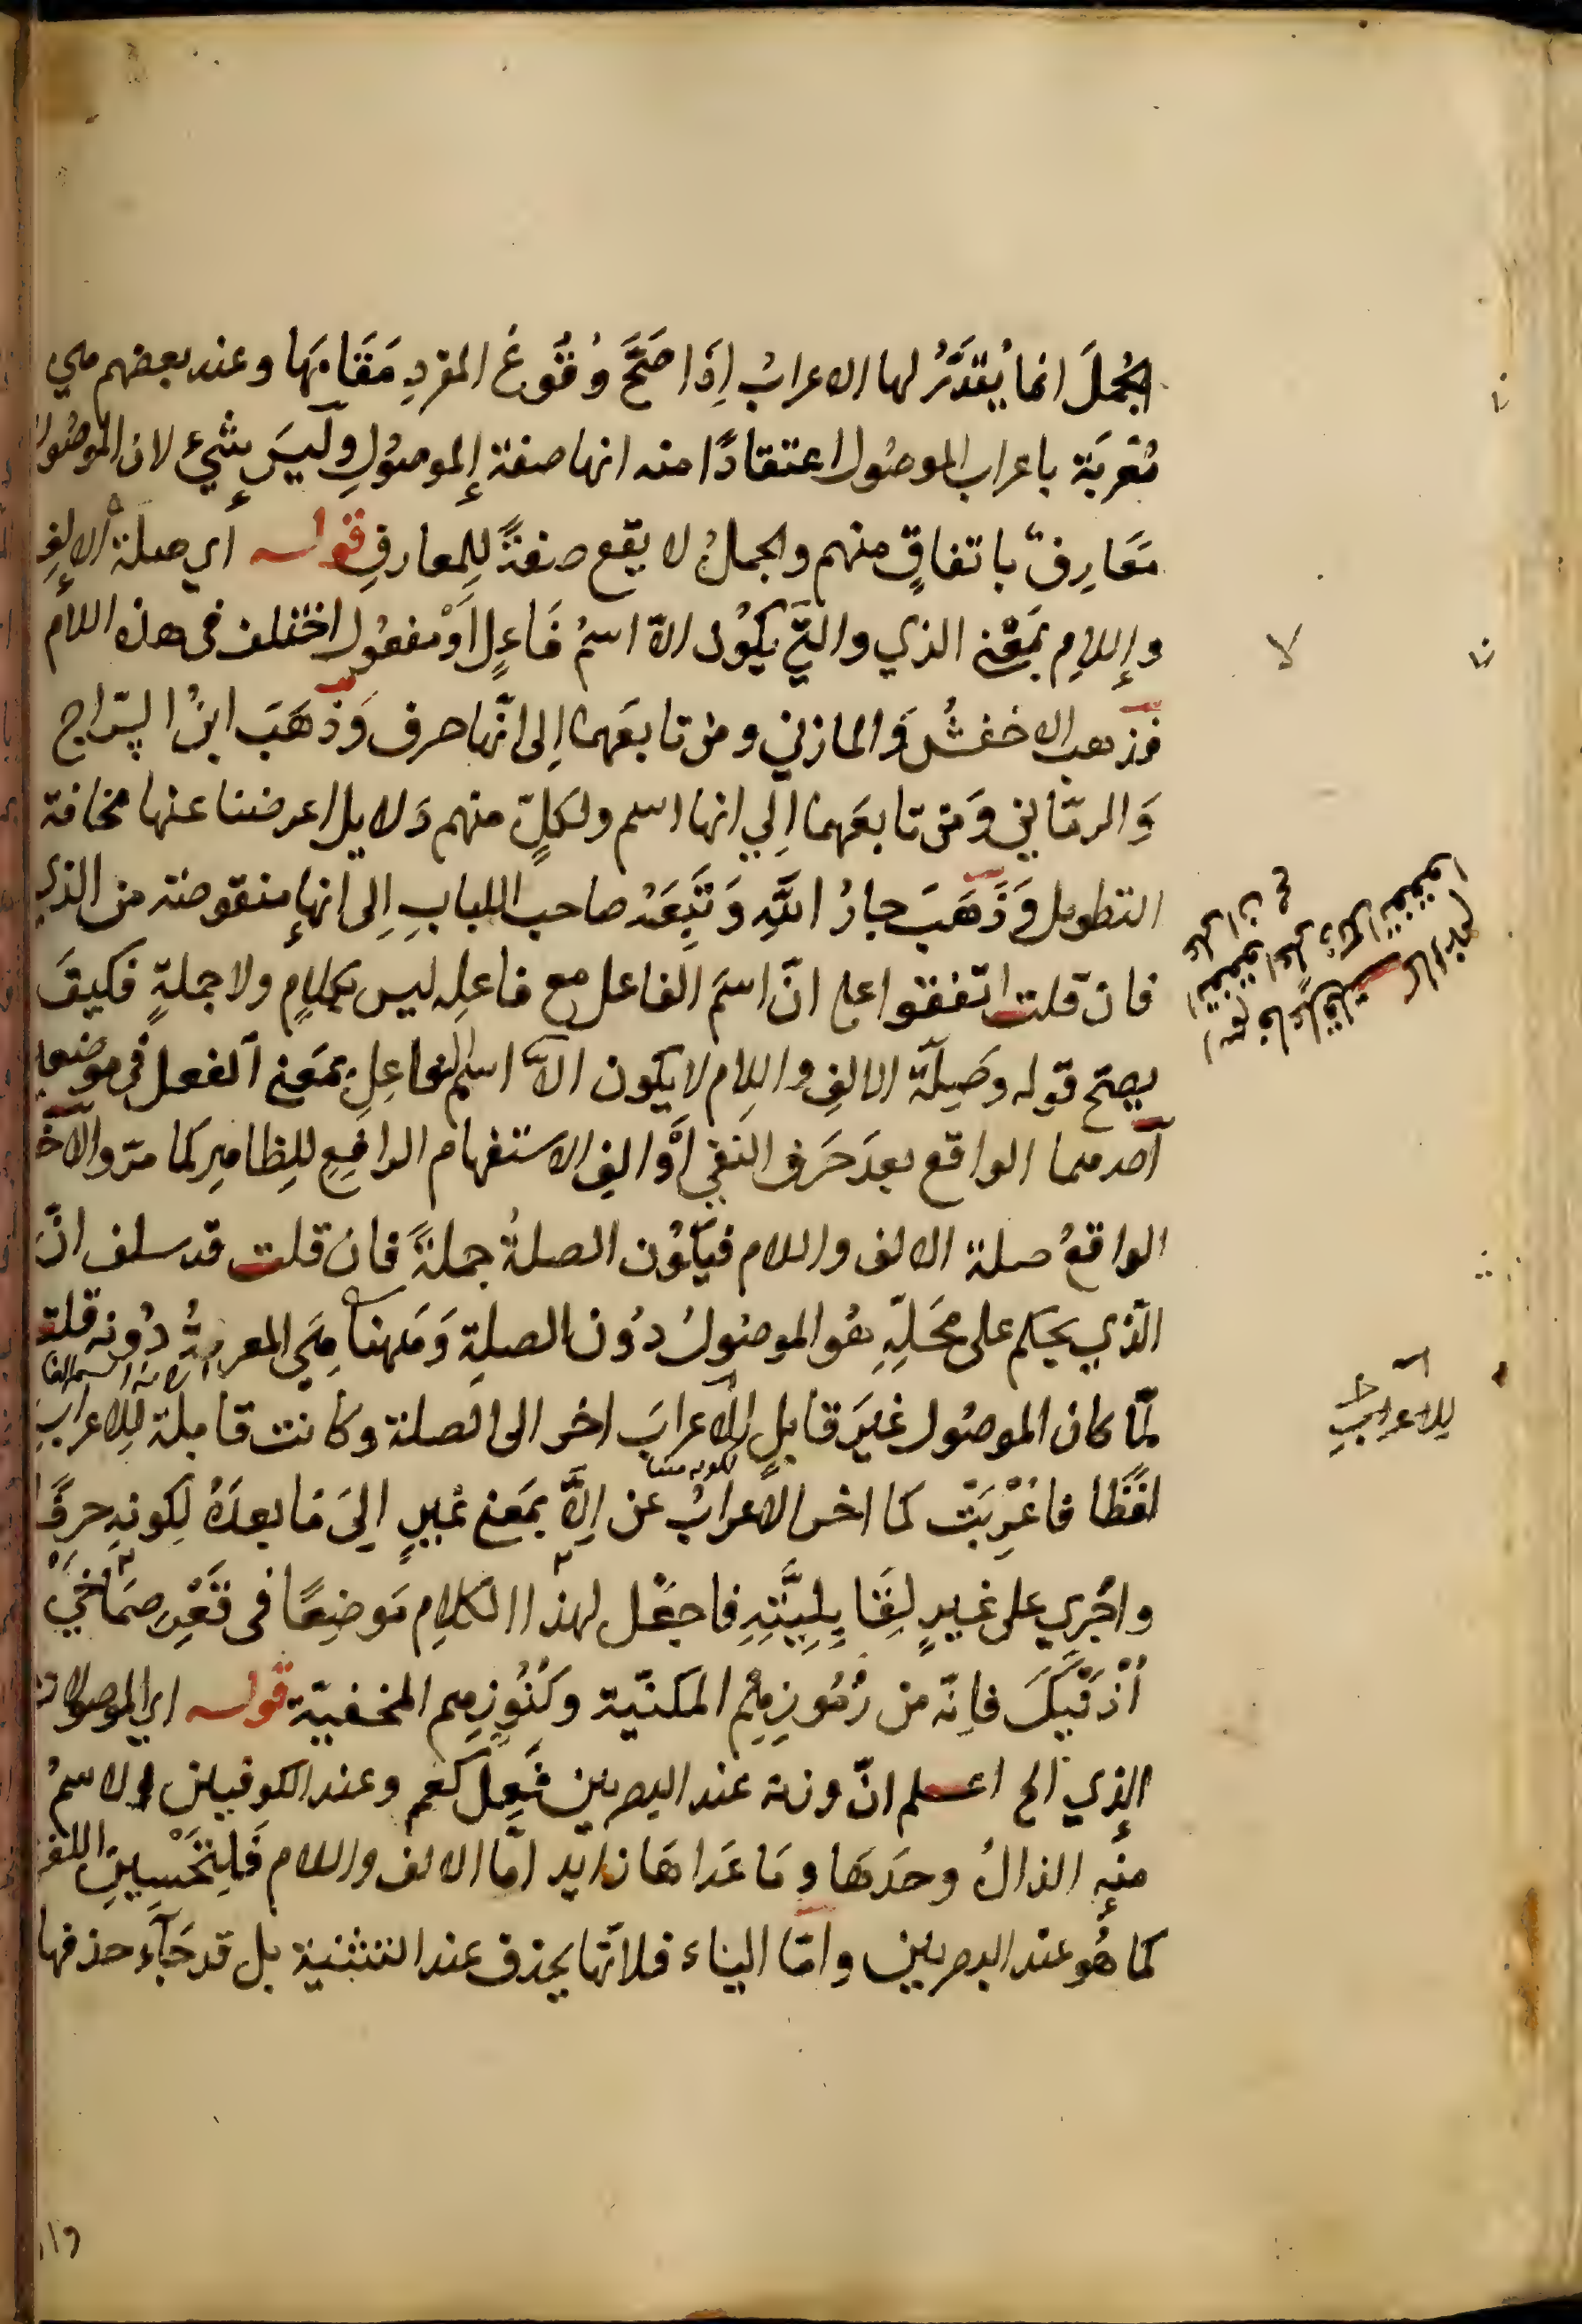 الجُملَ انما يُقدَّرُ لها الاعرابُ اِذَا صَحَّ وُقُوعُ المفردِ مَقَامَهَا وعند بعضهم هي
مُعْرَبَة باعراب الموصُول اعتقادًا منه انها صفة الموصُولِ وليسَ بِشَيْءٍ لان الموصُول
مَعَارِفُ باتفاقٍ منهم والجملُ لا يقع صفةً لِلمعارفِ قوله اي صلة الالفِ
واللامِ بمَعْنى الذي والتي يكُون الاّ اسمُ فَاعِلٍ اَوْ مفعُول اختلف فى هذه اللام
فذهب الاخفشُ وَالمازني ومن تابعَهما اِلى انّها حرف وَذَهَبَ ابنُ السّراج
وَالرمّاني وَمَن تابعَهما اِلي انها اسم ولكلٍّ منهم دَلايل اعرضنا عنها مخافة
التطويل وَذَهَبَ جارُ اللَّهِ وَتَبِعَهُ صاحب اللبابِ اِلى انها منقوصة من الذي
فان قلت اتفقوا على انّ اسمَ الفاعل مع فاعلِه ليس بكلامٍ ولا جملةٍ فكيفَ
يصحّ قوله وَصِلَة الالفِ واللام لا يكون الاّ اسم الفاعلِ بمَعنى الفعل فى موضعين
اَحدهما الواقع بعدَ حَرف النفي اَو الفِ الاستفهام الرافِعِ لِلظاهِرِ كما مرّ والآخر
الواقعُ صلة الالف واللام فيكُون الصلةُ جملةً فان قلت قد سلف انّ
الّذي يحكم على مَحَلِّهِ هُو الموصُولُ دُون الصلةِ وَههنا هِيَ المعربةُ دُونه قلت
لمّا كان الموصُول غيَر قابلٍ للاعرابَ اخر الى الصلة وكانت قابلة لِلاعرابِ
لفظًا فاعْرِبَتْ كما اخر الاعرابُ عن اِلاَّ بمَعنى غيرٍ اِلىَ مَا بعدَهُ لِكونهِ حرفًا
واُجْرِي على غيرٍ لِقَابِلِيَّتِهِ فاجعَل لهذا الكلامِ مَوضِعًا فى قَعْرِ صمَاخَيْ
اُذنَيكَ فاِنّه من رُمُوزِهِم المكنيّة وكُنُوزِهِم المخفيّة قوله اي الموصولات
الذي الخ اعلم انّ وزنه عند البصريين فَعِل كعم وعند الكوفيين الاسمُ
منه الذالُ وحدَهَا وَمَا عَداهَا زايد امّا الالف واللام فَلِتَحْسِينِ اللفظ
كما هُو عند البصريين وامّا الياء فلانّها يحذف عند التثنية بل قد جَاَء حذفها
لا
للاعرابِ